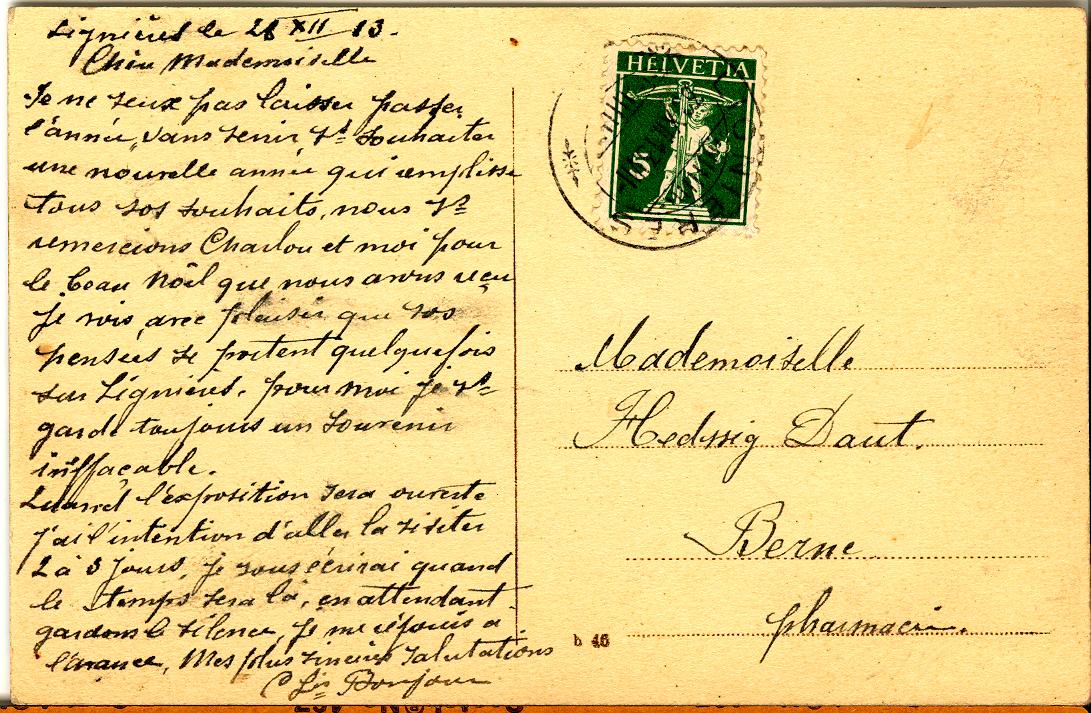 Lignières le 28 XII 13.
Chère Mademoiselle
Je ne veux pas laisser passer
l'année, sans venir, vs souhaiter
une nouvelle année qui remplisse
tous vos souhaits, nous vs
remercions Charlou et moi pour
le beau Nöel que nous avons reçu
Je vois, avec plaisir que vos
pensées se portent quelquefois
sur Lignières. pour moi je vs
garde toujours un souvenir
inéffaçable.
Quand l'exposition sera ouverte
j'ai l'intention d'aller la visiter
2 à 3 jours, je vous écrirai quand
le temps sera là, en attendant
gardons le silence, Je me réjouis a
l'avance, Mes plus sincères salutations
Bonjour
HELVETIA
5
Mademoiselle
Hedwig Daut.
Berne
pharmacie.
b 46